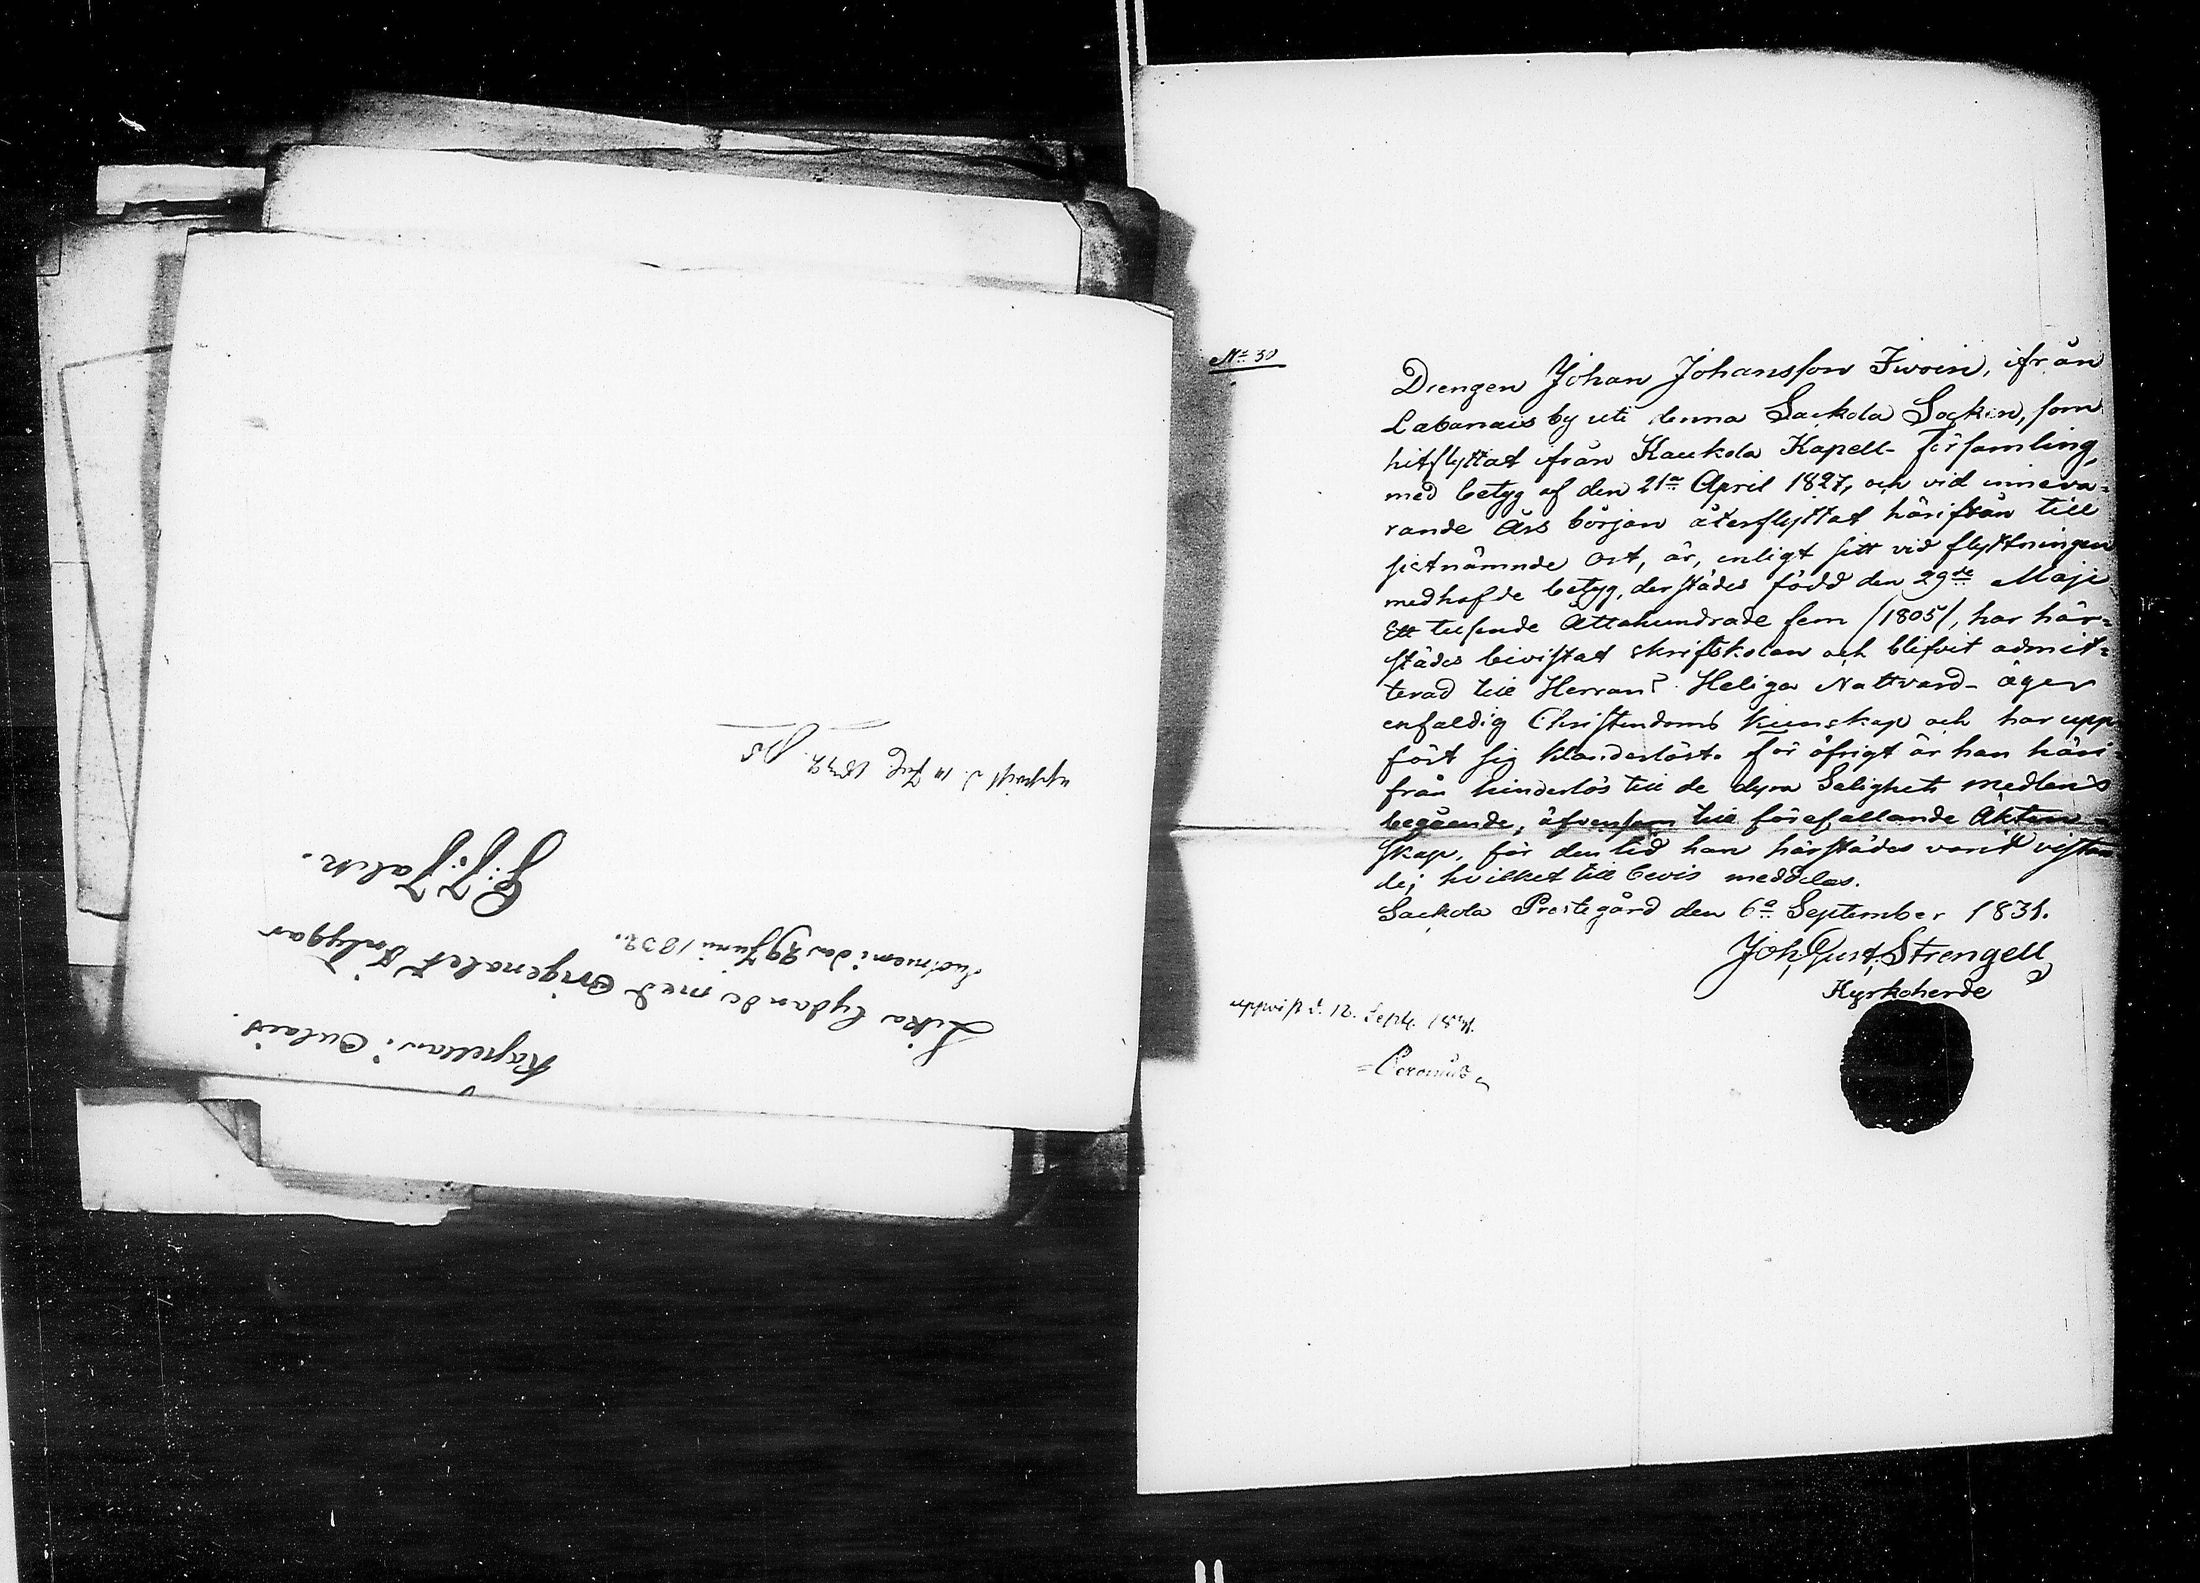 Lika lydande med Originalet Intygar
den 29 Juni 1832.
Kapellan i
uppvist d. 1832.
No 30
Drengen Johan Johansson Iwoin, ifrån
Labanais by uti denna Sackola Sockn, som
hitflyttat ifrån Kaukola Kapell-Församling,
med betyg af den 21a April 1827, och vid inneva=
rande Års början återflyttat härifrån till
sistnämnde Ort, är, enligt sitt vid flyttningen
medhafde betyg, derstädes född den 29de Maji
Ett tusende Åttahundrade fem /1805/, har här=
städes bevistat skriftskolan och blifvit admit=
terad till Herrans Heliga Nattvard- äger
enfaldig Christendoms kunskap och har upp
fört sig klanderlöst. För öfrigt är han häri
från hinderlös till de dyra Salighets medlens
begående, äfvensom till förefallande Äkten=
skap, för den tid han härstädes varit vistan
de; hvilket till bevis meddelas.
Sackola Prestegård den 6a September 1831.
Joh. Gust. Strengell
Kyrkoherde
uppvist d. 12. Sept. 1831.